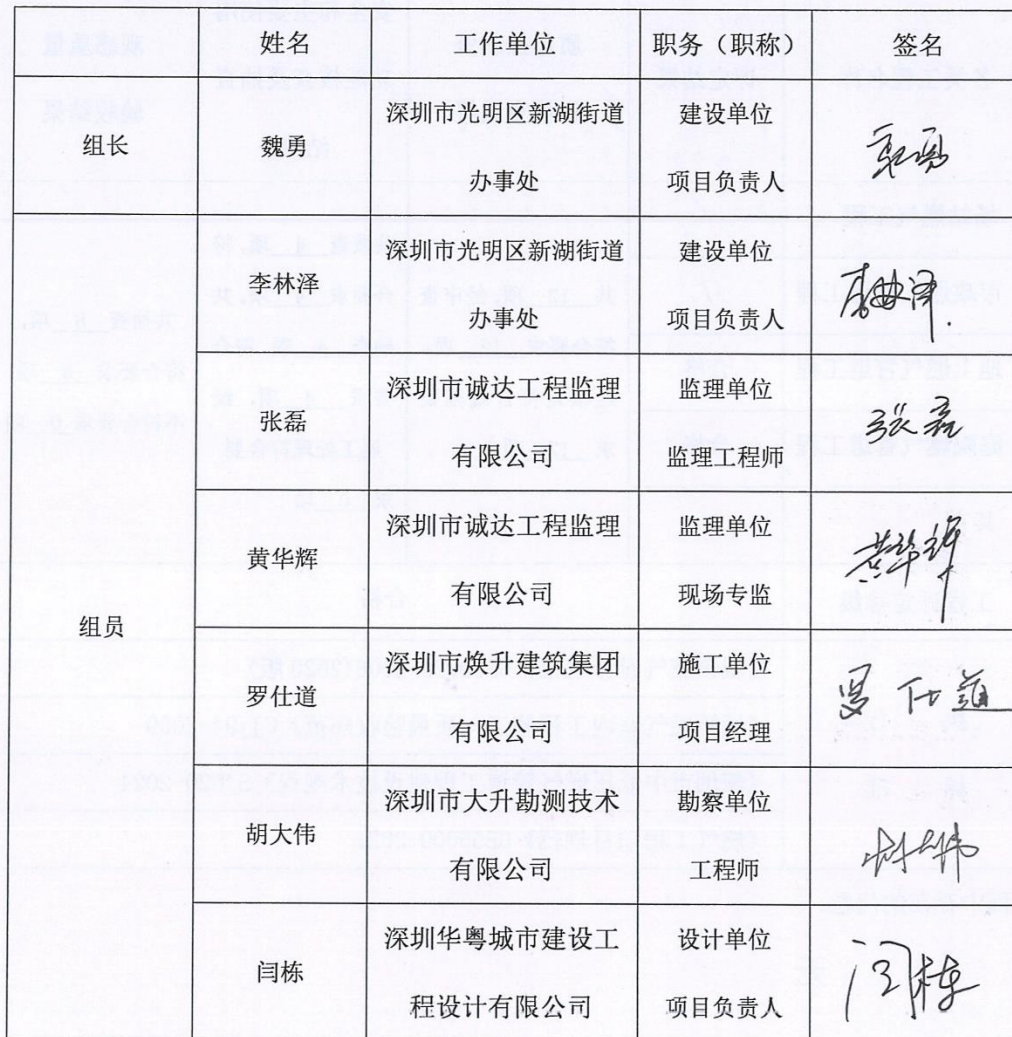 姓名 工作单位 职务（职称） 签名
组长 魏勇 深圳市光明区新湖街道办事处 建设单位 项目负责人
组员 李林泽 深圳市光明区新湖街道办事处 建设单位 项目负责人 李林泽
张磊 深圳市诚达工程监理有限公司 监理单位 监理工程师 张磊
黄华辉 深圳市诚达工程监理有限公司 监理单位 现场专监 黄华辉
罗仕道 深圳市焕升建筑集团有限公司 施工单位 项目经理 罗仕道
胡大伟 深圳市大升勘测技术有限公司 勘察单位 工程师 胡大伟
闫栋 深圳华粤城市建设工程设计有限公司 设计单位 项目负责人 闫栋